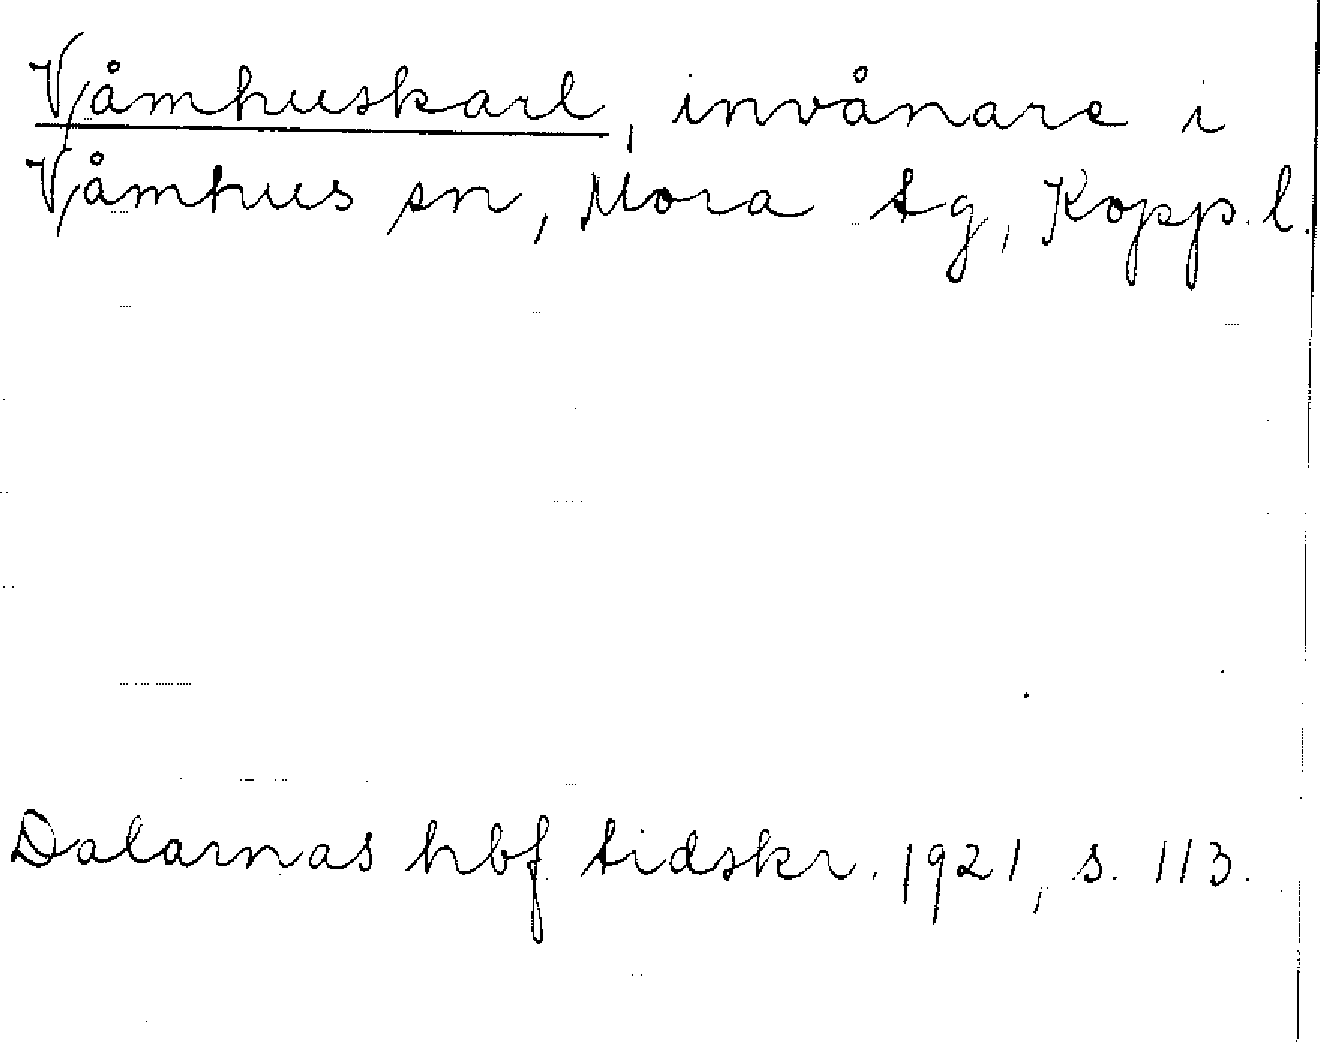 Våmhuskarl, invånare i
Våmhus sn, Mora tg, Kopp. l.
Dalarnas hbf tidskr. 1921, s. 113.